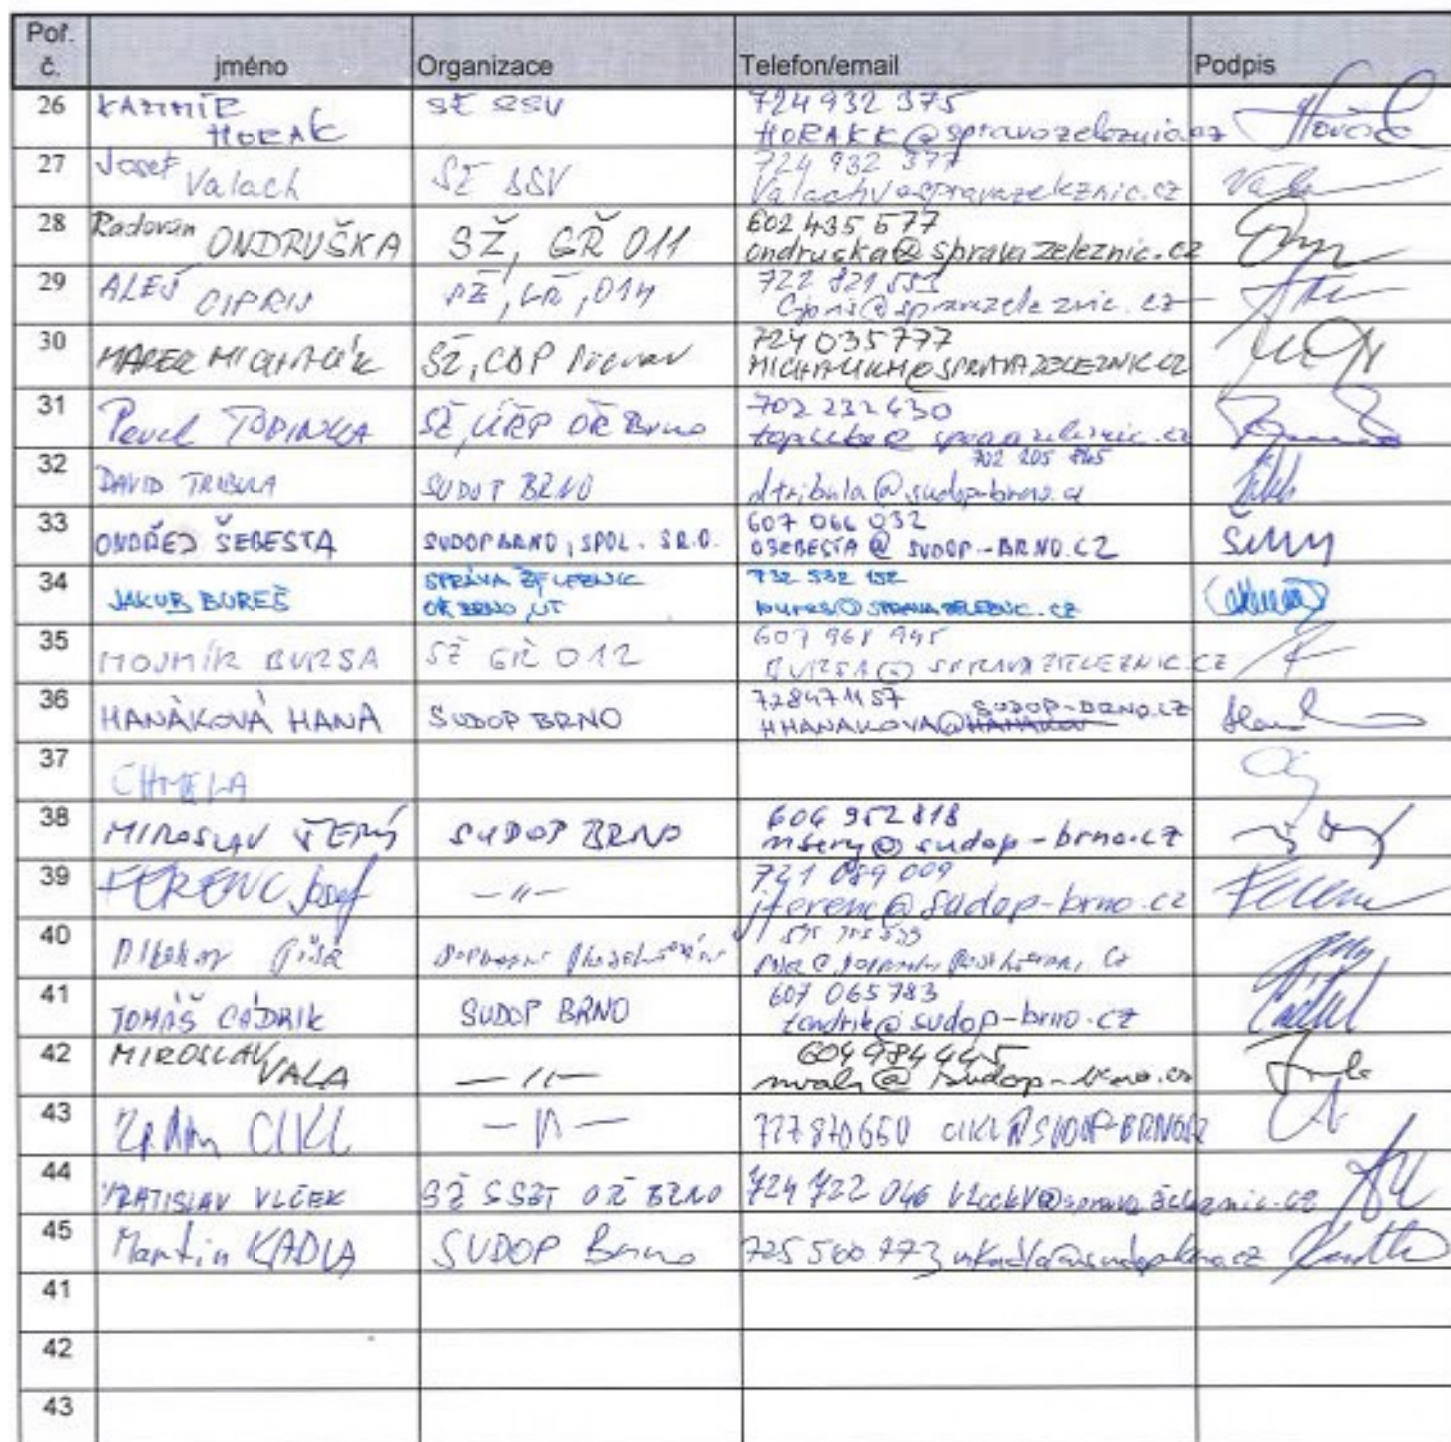 Poř. č. jméno Organizace Telefon/email Podpis
26 KAZIMÍR HORÁK SŽ SSV 724 932 375
HORAKK@spravazeleznic.cz
27 Josef Valach SŽ SSV 724 932 377
Valachv@spravazeleznic.cz
28 Radovan ONDRUŠKA SŽ, GŘ 011 602 435 577
ondruska@spravazeleznic.cz
29 ALEŠ CIPRIS SŽ, GŘ, 014 722 821 553
Cipris@spravazeleznic.cz
30 MAREK MICHALÍK SŽ, CDP 724 035 777
MICHALIKM@SPRAVAZELEZNIC.CZ
31 Pavel TOPINKA SŽ, OŘ Brno 702 232 430
spravazeleznic.cz
32 DAVID TRIBULA SUDOP BRNO 702 205 865
dtribula@sudop-brno.cz
33 ONDŘEJ ŠEBESTA SUDOP BRNO, SPOL. SR.O. 607 066 032
OSEBESTA@SUDOP-BRNO.CZ
34 JAKUB BUREŠ SPRÁVA ŽELEZNIC 732 532 152
OŘ BRNO, ÚT bures@SPRAVAZELEZNIC.CZ
35 MOJMÍR BURSA SŽ GŘ 012 607 968 945
BURSA@SPRAVAZELEZNIC.CZ
36 HANÁKOVÁ HANA SUDOP BRNO 728471157
HHANAKOVA@SUDOP-BRNO.CZ
37 CHMELA
38 MIROSLAV ŠERÝ SUDOP BRNO 606 952 818
msery@sudop-brno.cz
39 FERENC Josef —〃— 721 089 009
jferenc@sudop-brno.cz
40
41 TOMÁŠ CÁDRIK SUDOP BRNO 607 065 783
tcadrik@sudop-brno.cz
42 MIROSLAV VALA —〃— 604 984 445
mvala@sudop-brno.cz
43 CIKL —〃— 727 870 660 CIKL@SUDOP-BRNO.CZ
44 VRATISLAV VLČEK SŽ SSZT OŘ BRNO 724 722 046 VlcekV@spravazeleznic.cz
45 Martin KADLA SUDOP Brno 725 560 773 mkadla@sudop-brno.cz
41
42
43